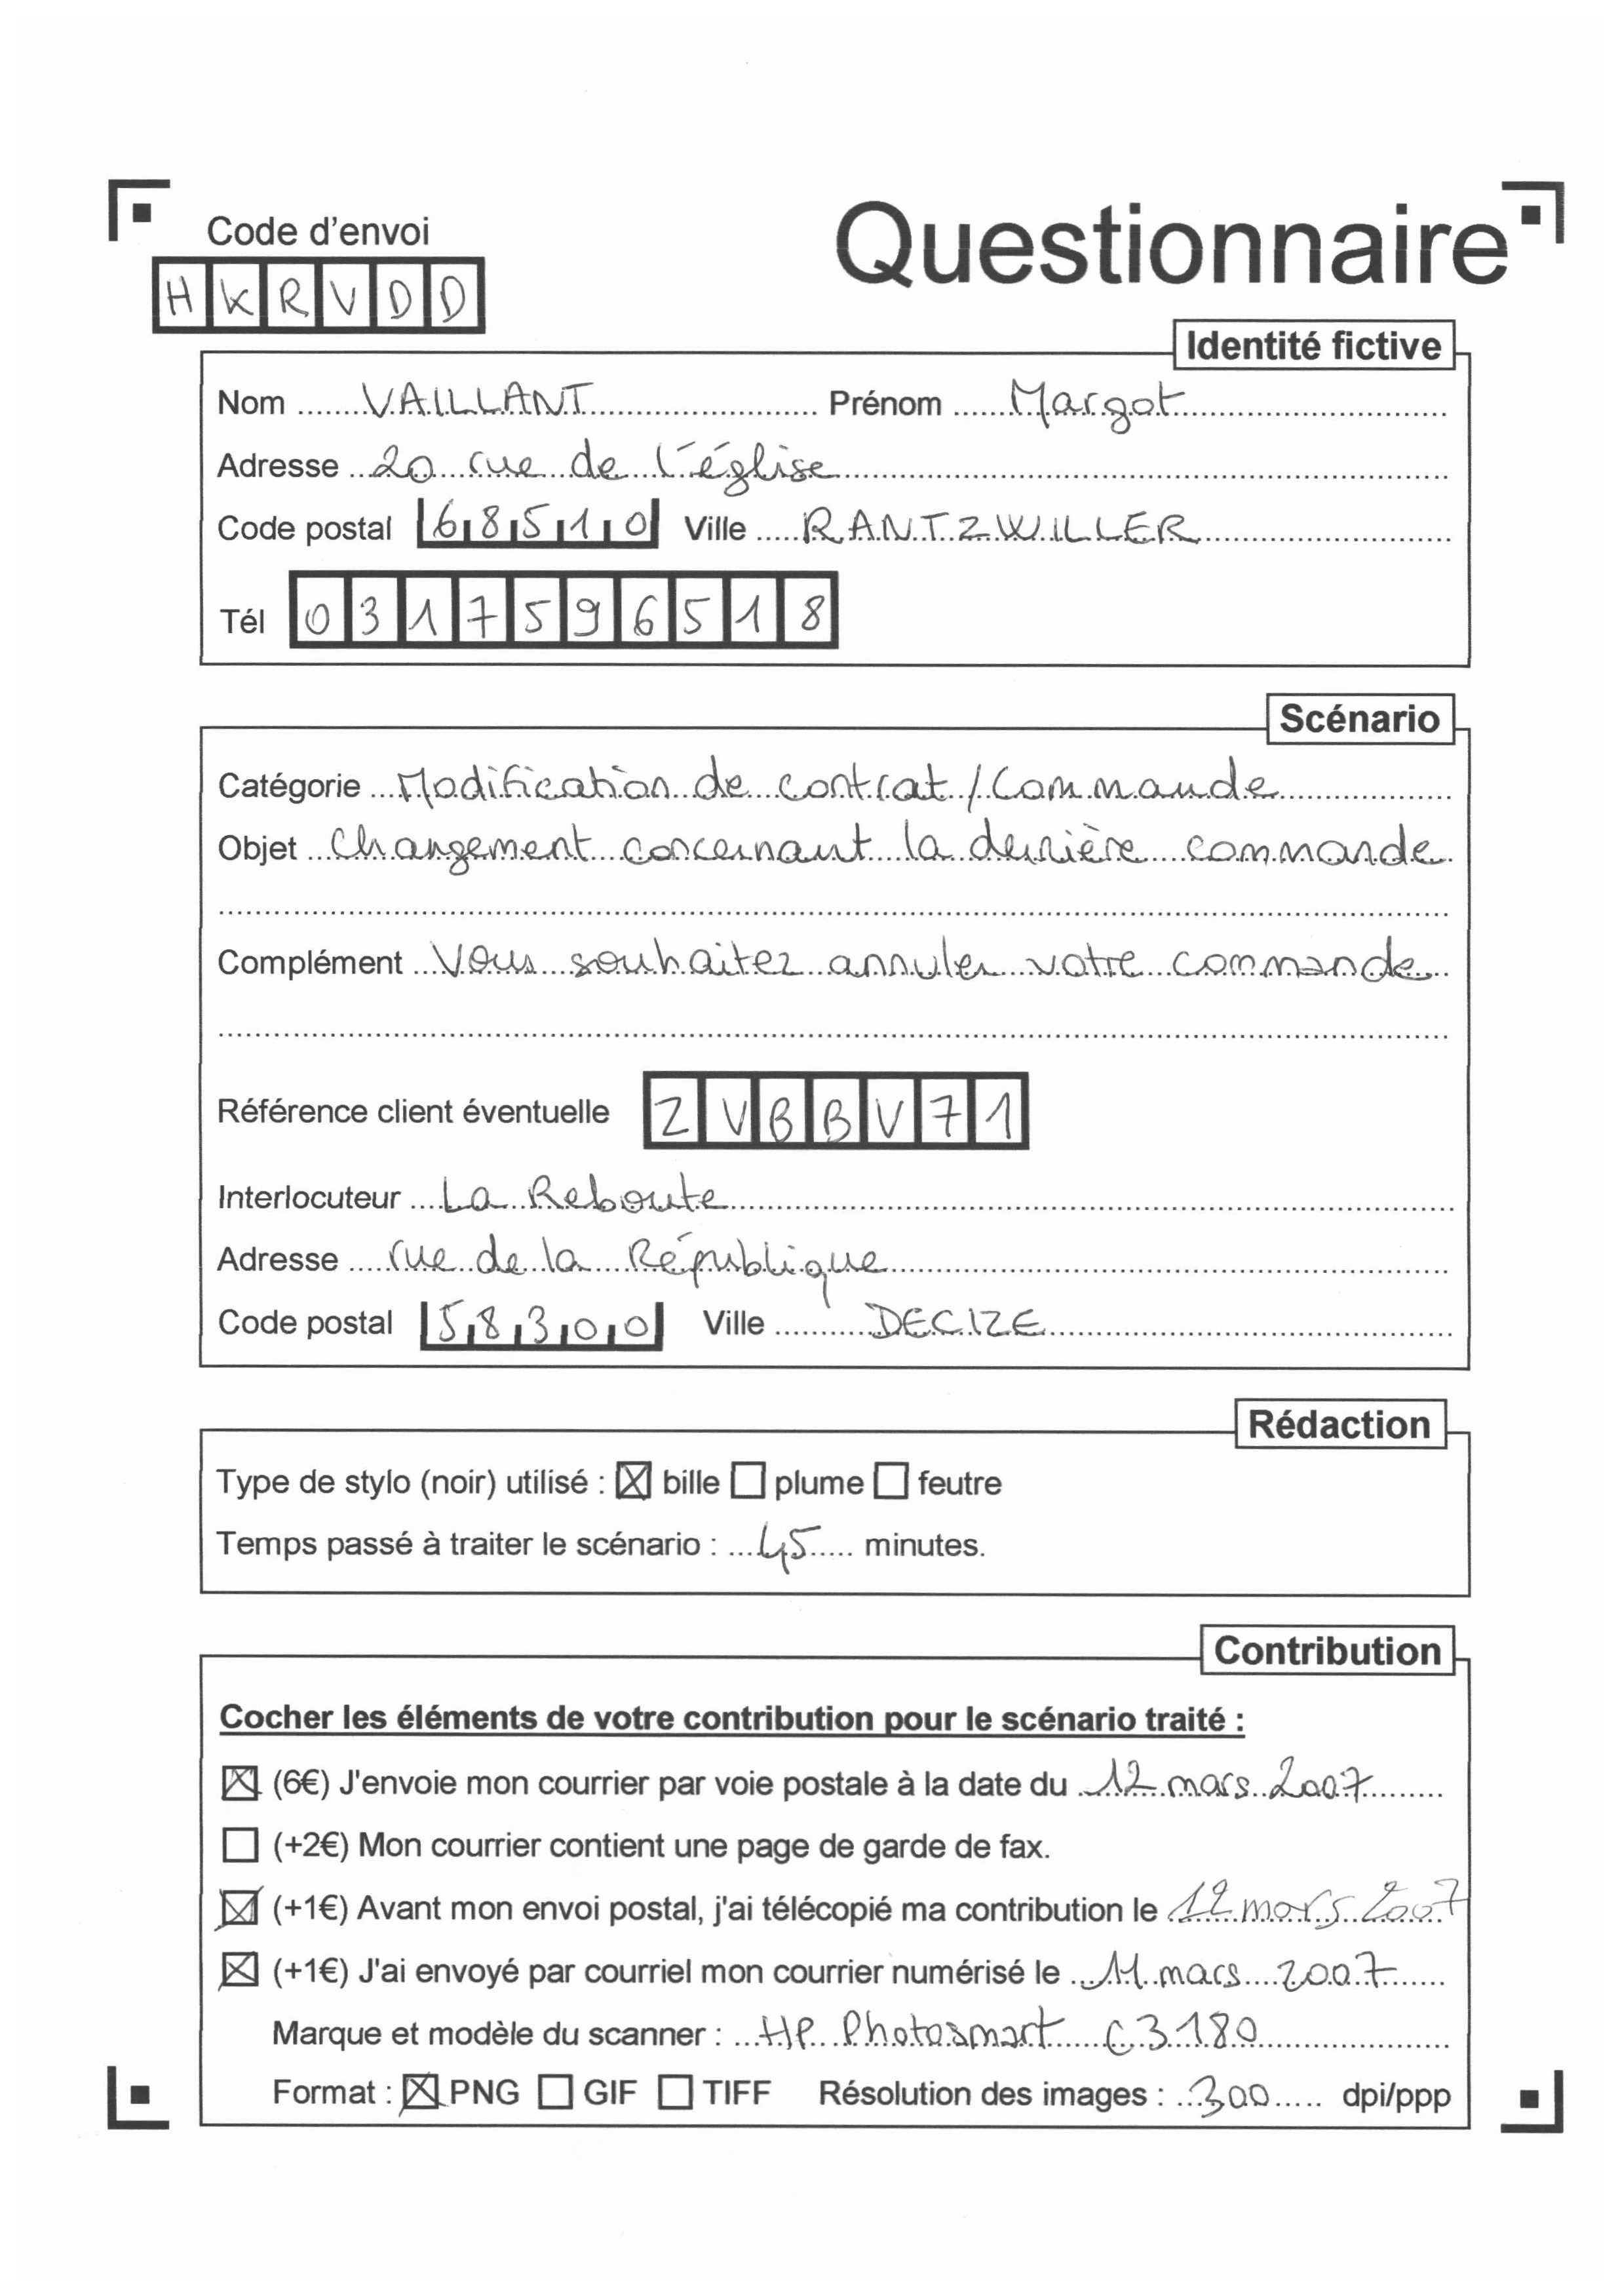 Code d'envoi
Questionnaire
HKRVDD
Identité fictive
Nom VAILLANT Prénom Margot
Adresse 20 rue de l'église
Code postal 68510 Ville RANTZWILLER
Tél 0317596518
Scénario
Catégorie Modification de contrat / Commande
Objet Changement concernant la dernière commande
Complément Vous souhaitez annuler votre commande
Référence client éventuelle ZVBBV71
Interlocuteur La Reboute
Adresse rue de la République
Code postal 58300 Ville DECIZE
Rédaction
Type de stylo (noir) utilisé : ☒ bille ☐ plume ☐ feutre
Temps passé à traiter le scénario : 45 minutes.
Contribution
Cocher les éléments de votre contribution pour le scénario traité :
☒ (6€) J'envoie mon courrier par voie postale à la date du 12 mars 2007
☐ (+2€) Mon courrier contient une page de garde de fax.
☒ (+1€) Avant mon envoi postal, j'ai télécopié ma contribution le 12 mars 2007
☒ (+1€) J'ai envoyé par courriel mon courrier numérisé le 11 mars 2007
Marque et modèle du scanner : HP Photosmart C3180
Format : ☒ PNG ☐ GIF ☐ TIFF Résolution des images : 300 dpi/ppp